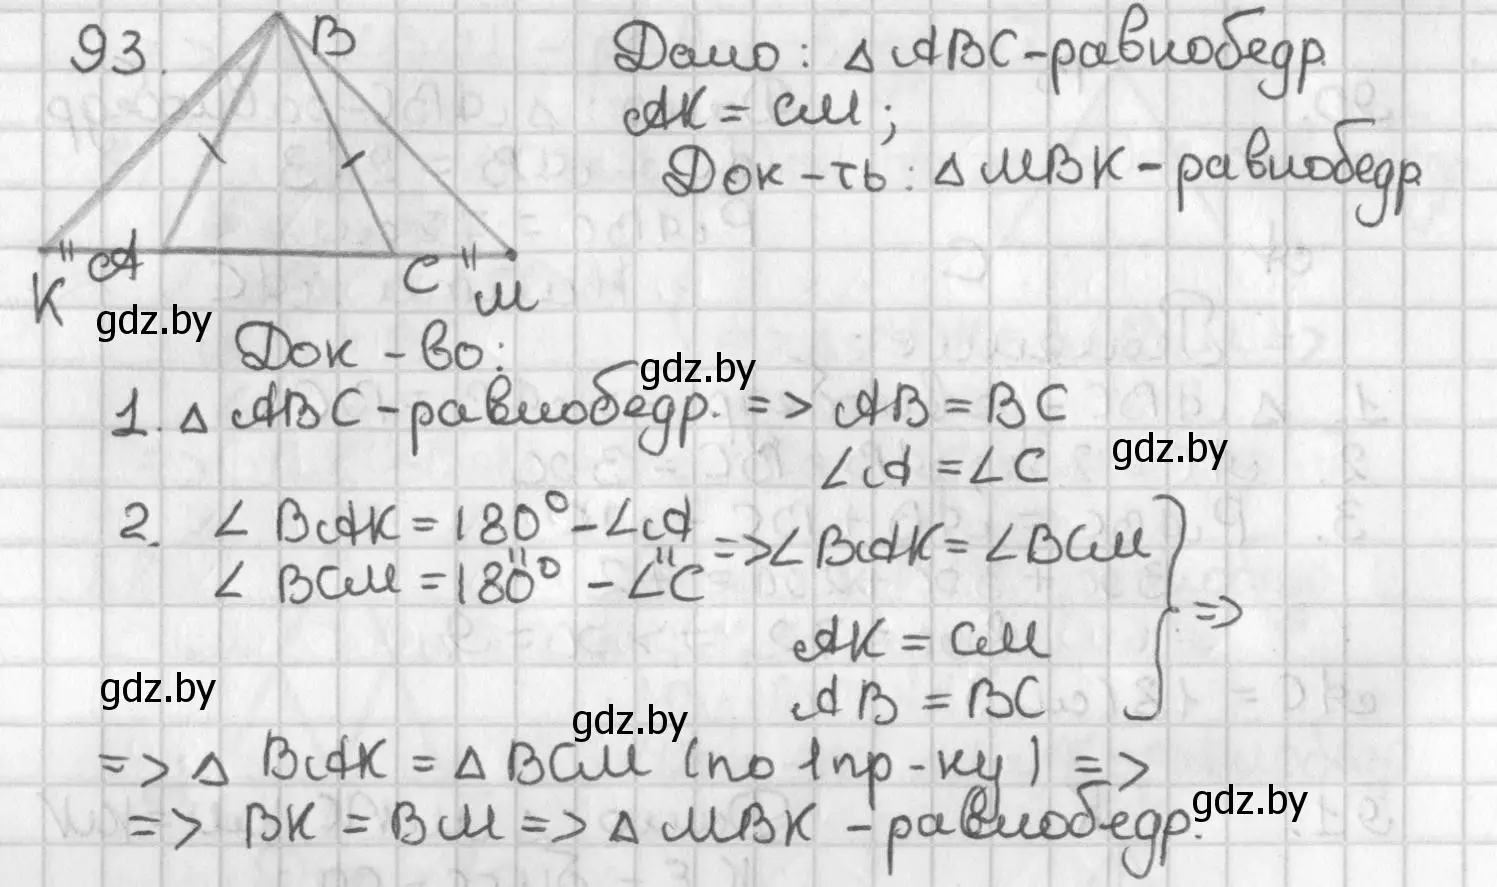 93.
B
Дано: △ ABC-равнобедр.
AK = CM;
Док-ть: △ MBK - равнобедр.
K " A C " M
gdz.by
Док - во:
gdz.by
1. △ ABC-равнобедр. => AB = BC
∠A = ∠C
gdz.by
2. ∠ BAK = 180° - ∠A
" "
∠ BCM = 180° - ∠C
=> ∠BAK = ∠BCM
AK = CM
AB = BC
} =>
gdz.by
gdz.by
=> △ BAK = △ BCM (по 1 пр-ку) =>
gdz.by
=> BK = BM => △ MBK - равнобедр.